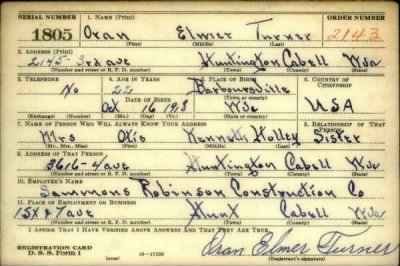 SERIAL NUMBER 1. NAME (Print) ORDER NUMBER
1805 Oran Elmer Turner 2143
(First) (Middle) (Last)
2. ADDRESS (Print)
2145-3rd ave Huntington Cabell W Va
(Number and street or R. F. D. number) (Town) (County) (State)
3. TELEPHONE 4. AGE IN YEARS 5. PLACE OF BIRTH 6. COUNTRY OF CITIZENSHIP
No 22 Barboursville
DATE OF BIRTH (Town or county)
Oct 16 W Va USA
(Exchange) (Number) (Mo.) (Day) (Yr.) (State or country)
7. NAME OF PERSON WHO WILL ALWAYS KNOW YOUR ADDRESS 8. RELATIONSHIP OF THAT PERSON
Mrs Otis Kenneth Holley Sister
(Mr., Mrs., Miss) (First) (Middle) (Last)
9. ADDRESS OF THAT PERSON
3616-4/ave Huntington Cabell W Va
(Number and street or R. F. D. number) (Town) (County) (State)
10. EMPLOYER'S NAME
Sammons Robinson Construction Co
11. PLACE OF EMPLOYMENT OR BUSINESS
15 x 7 ave Hunt Cabell W Va
(Number and street or R. F. D. number) (Town) (County) (State)
I AFFIRM THAT I HAVE VERIFIED ABOVE ANSWERS AND THAT THEY ARE TRUE.
REGISTRATION CARD
D. S. S. Form 1 (over) 16-17105 Oran Elmer Turner
(Registrant's signature)